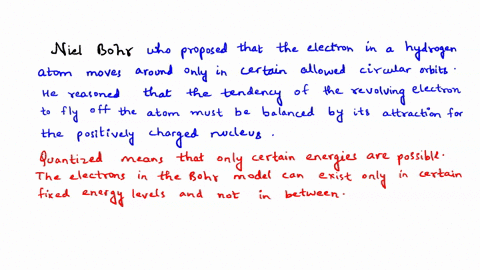 Niel Bohr who proposed that the electron in a hydrogen
atom moves around only in certain allowed circular orbits.
He reasoned that the tendency of the revolving electron
to fly off the atom must be balanced by its attraction for
the positively charged nucleus.
Quantized means that only certain energies are possible.
The electrons in the Bohr model can exist only in certain
fixed energy levels and not in between.